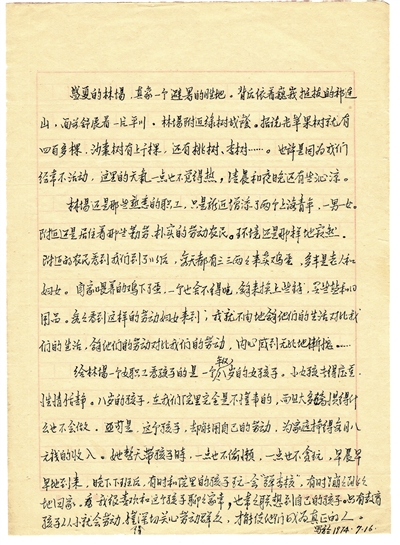 盛夏的林场，真象一个避暑的胜地。背后依着巍峨挺拔的祁连
山，面前舒展着一片平川。林场附近绿树成荫。据说光苹果树就有
四百多棵，沙枣树有上千棵，还有桃树、杏树……。也许是因为我们
经常不活动，这里的天气一点也不觉得热，清晨和夜晚还有些沁凉。
林场还是那些熟悉的职工，只是新近增添了两个上海青年，一男一女。
附近还是居住着那些勤劳、朴实的劳动农民。环境还是那样地寂
附近的农民看到我们到了以后，每天都有三三两两来卖鸡蛋，多半是老人和
妇女。自家喂着的鸡下了蛋，一个也舍不得吃，拿来换上些钱，买些盐和日
用品。每每看到这样的劳动妇女来到，我就不由地拿他们的生活对比我
们的生活，拿他们的劳动对比我们的劳动，内心感到无比地惭愧……
给林场一个女职工看孩子的是一个八岁的女孩子。小女孩
性情恬静。八岁的孩子，在我们院里完全是不懂事的，而且大多
么也不会做。可是，这个孩子，却能用自己的劳动，为家
元钱的收入。她整天带孩子呀，一点也不偷懒，一点也不贪玩，早晨早
早地到来，晚上下班后，有时和院里的孩子玩一会，有时
地回家。我很喜欢和这个孩子聊聊家常，也常常联想到自己的孩子。只有教育
孩子从小社会劳动，深切关心劳动群众，才能使他们成为真正的人。
1974.7.16.